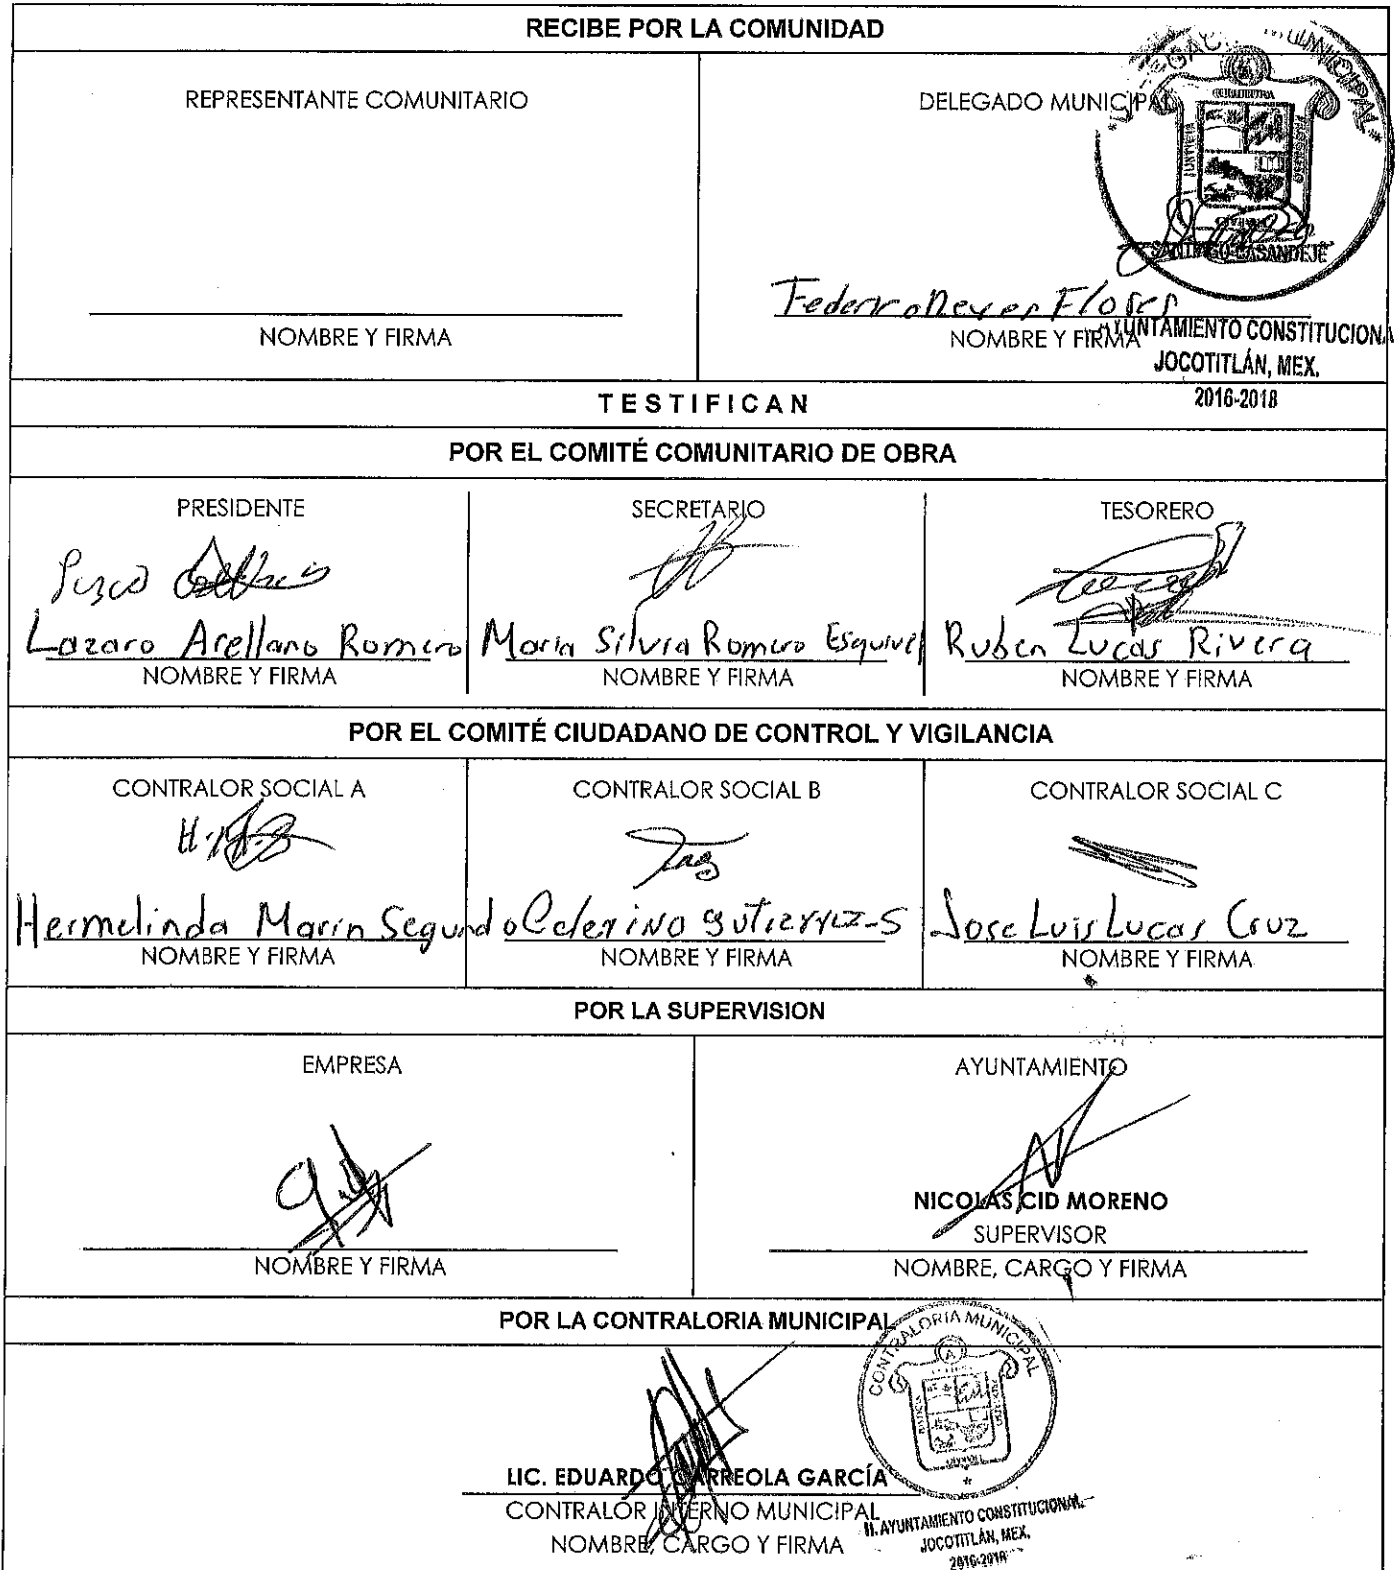 RECIBE POR LA COMUNIDAD
REPRESENTANTE COMUNITARIO
NOMBRE Y FIRMA
DELEGADO MUNICIPAL
MUNICIPAL
SANTIAGO CASANDEJE
Flores
NOMBRE Y FIRMA
AYUNTAMIENTO CONSTITUCIONA
JOCOTITLÁN, MEX.
2016-2018
TESTIFICAN
POR EL COMITÉ COMUNITARIO DE OBRA
PRESIDENTE
Lazaro Arellano Romero
NOMBRE Y FIRMA
SECRETARIO
Maria Silvia Romero Esquivel
NOMBRE Y FIRMA
TESORERO
Ruben Lucas Rivera
NOMBRE Y FIRMA
POR EL COMITÉ CIUDADANO DE CONTROL Y VIGILANCIA
CONTRALOR SOCIAL A
Hermelinda Marin Segundo
NOMBRE Y FIRMA
CONTRALOR SOCIAL B
Ceferino gutierrez-S
NOMBRE Y FIRMA
CONTRALOR SOCIAL C
Jose Luis Lucas Cruz
NOMBRE Y FIRMA
POR LA SUPERVISION
EMPRESA
NOMBRE Y FIRMA
AYUNTAMIENTO
NICOLAS CID MORENO
SUPERVISOR
NOMBRE, CARGO Y FIRMA
POR LA CONTRALORIA MUNICIPAL
LIC. EDUARDO CARREOLA GARCÍA
CONTRALOR INTERNO MUNICIPAL
NOMBRE, CARGO Y FIRMA
CONTRALORIA MUNICIPAL
H. AYUNTAMIENTO CONSTITUCIONAL
JOCOTITLÁN, MEX.
2016-2018